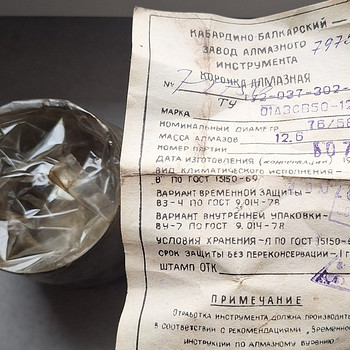 КАБАРДИНО-БАЛКАРСКИЙ -
ЗАВОД АЛМАЗНОГО
ИНСТРУМЕНТА
КОРОНКА АЛМАЗНАЯ
№
ТУ 2-037-302-
МАРКА 01А3СВ50-12
НОМИНАЛЬНЫЙ ДИАМЕТР 76/58
МАССА АЛМАЗОВ 12.6
НОМЕР ПАРТИИ 807
ДАТА ИЗГОТОВЛЕНИЯ
ВИД КЛИМАТИЧЕСКОГО ИСПОЛНЕНИЯ -
В ПО ГОСТ 15150-69
ВАРИАНТ ВРЕМЕННОЙ ЗАЩИТЫ -
ВЗ-4 ПО ГОСТ 9.014-78
ВАРИАНТ ВНУТРЕННЕЙ УПАКОВКИ-
ВУ-7 ПО ГОСТ 9.014-78
УСЛОВИЯ ХРАНЕНИЯ -Л ПО ГОСТ 15150-6
СРОК ЗАЩИТЫ БЕЗ ПЕРЕКОНСЕРВАЦИИ-1 Г
ШТАМП ОТК
ПРИМЕЧАНИЕ
ОТРАБОТКА ИНСТРУМЕНТА ДОЛЖНА ПРОИЗВОДИТЬ
В СООТВЕТСТВИИ С РЕКОМЕНДАЦИЯМИ „ВРЕМЕННО
ИНСТРУКЦИИ ПО АЛМАЗНОМУ БУРЕНИЮ